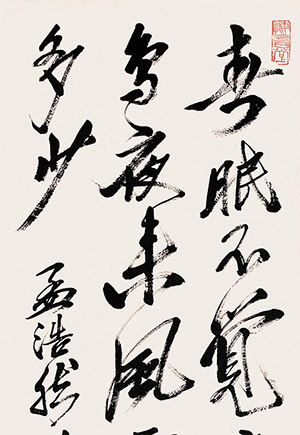 春眠不覺
鳥夜来風
多少
孟浩然